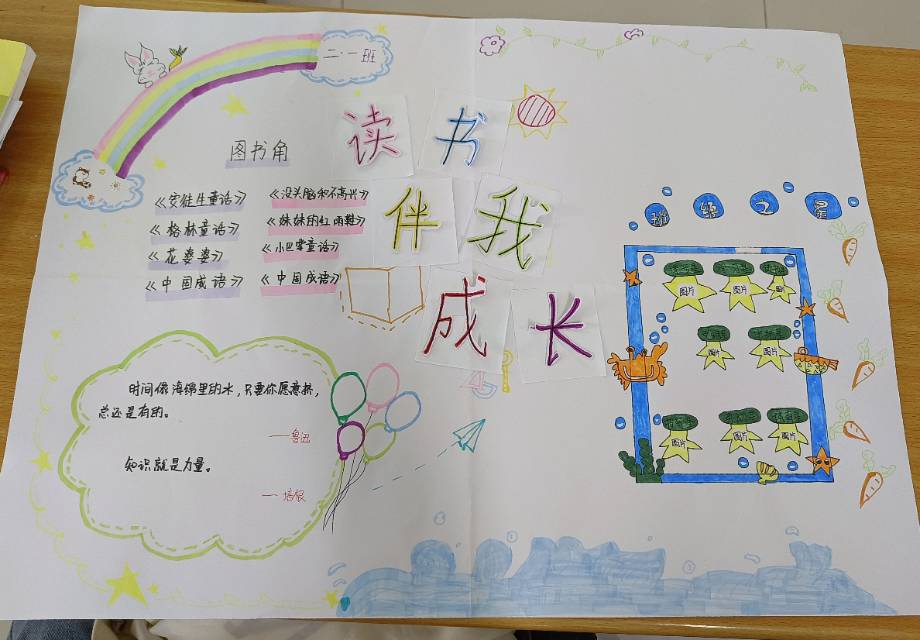 二.一班
读书
伴我
成长
图书角
《安徒生童话》
《格林童话》
《花婆婆》
《中国成语》
《没头脑和不高兴》
《妹妹的红雨鞋》
《小巴掌童话》
《中国成语》
时间像海绵里的水,只要你愿意挤,
总还是有的。
——鲁迅
知识就是力量。
——培根
之星
图片
图片
图片
图片
图片
图片
图片
图片